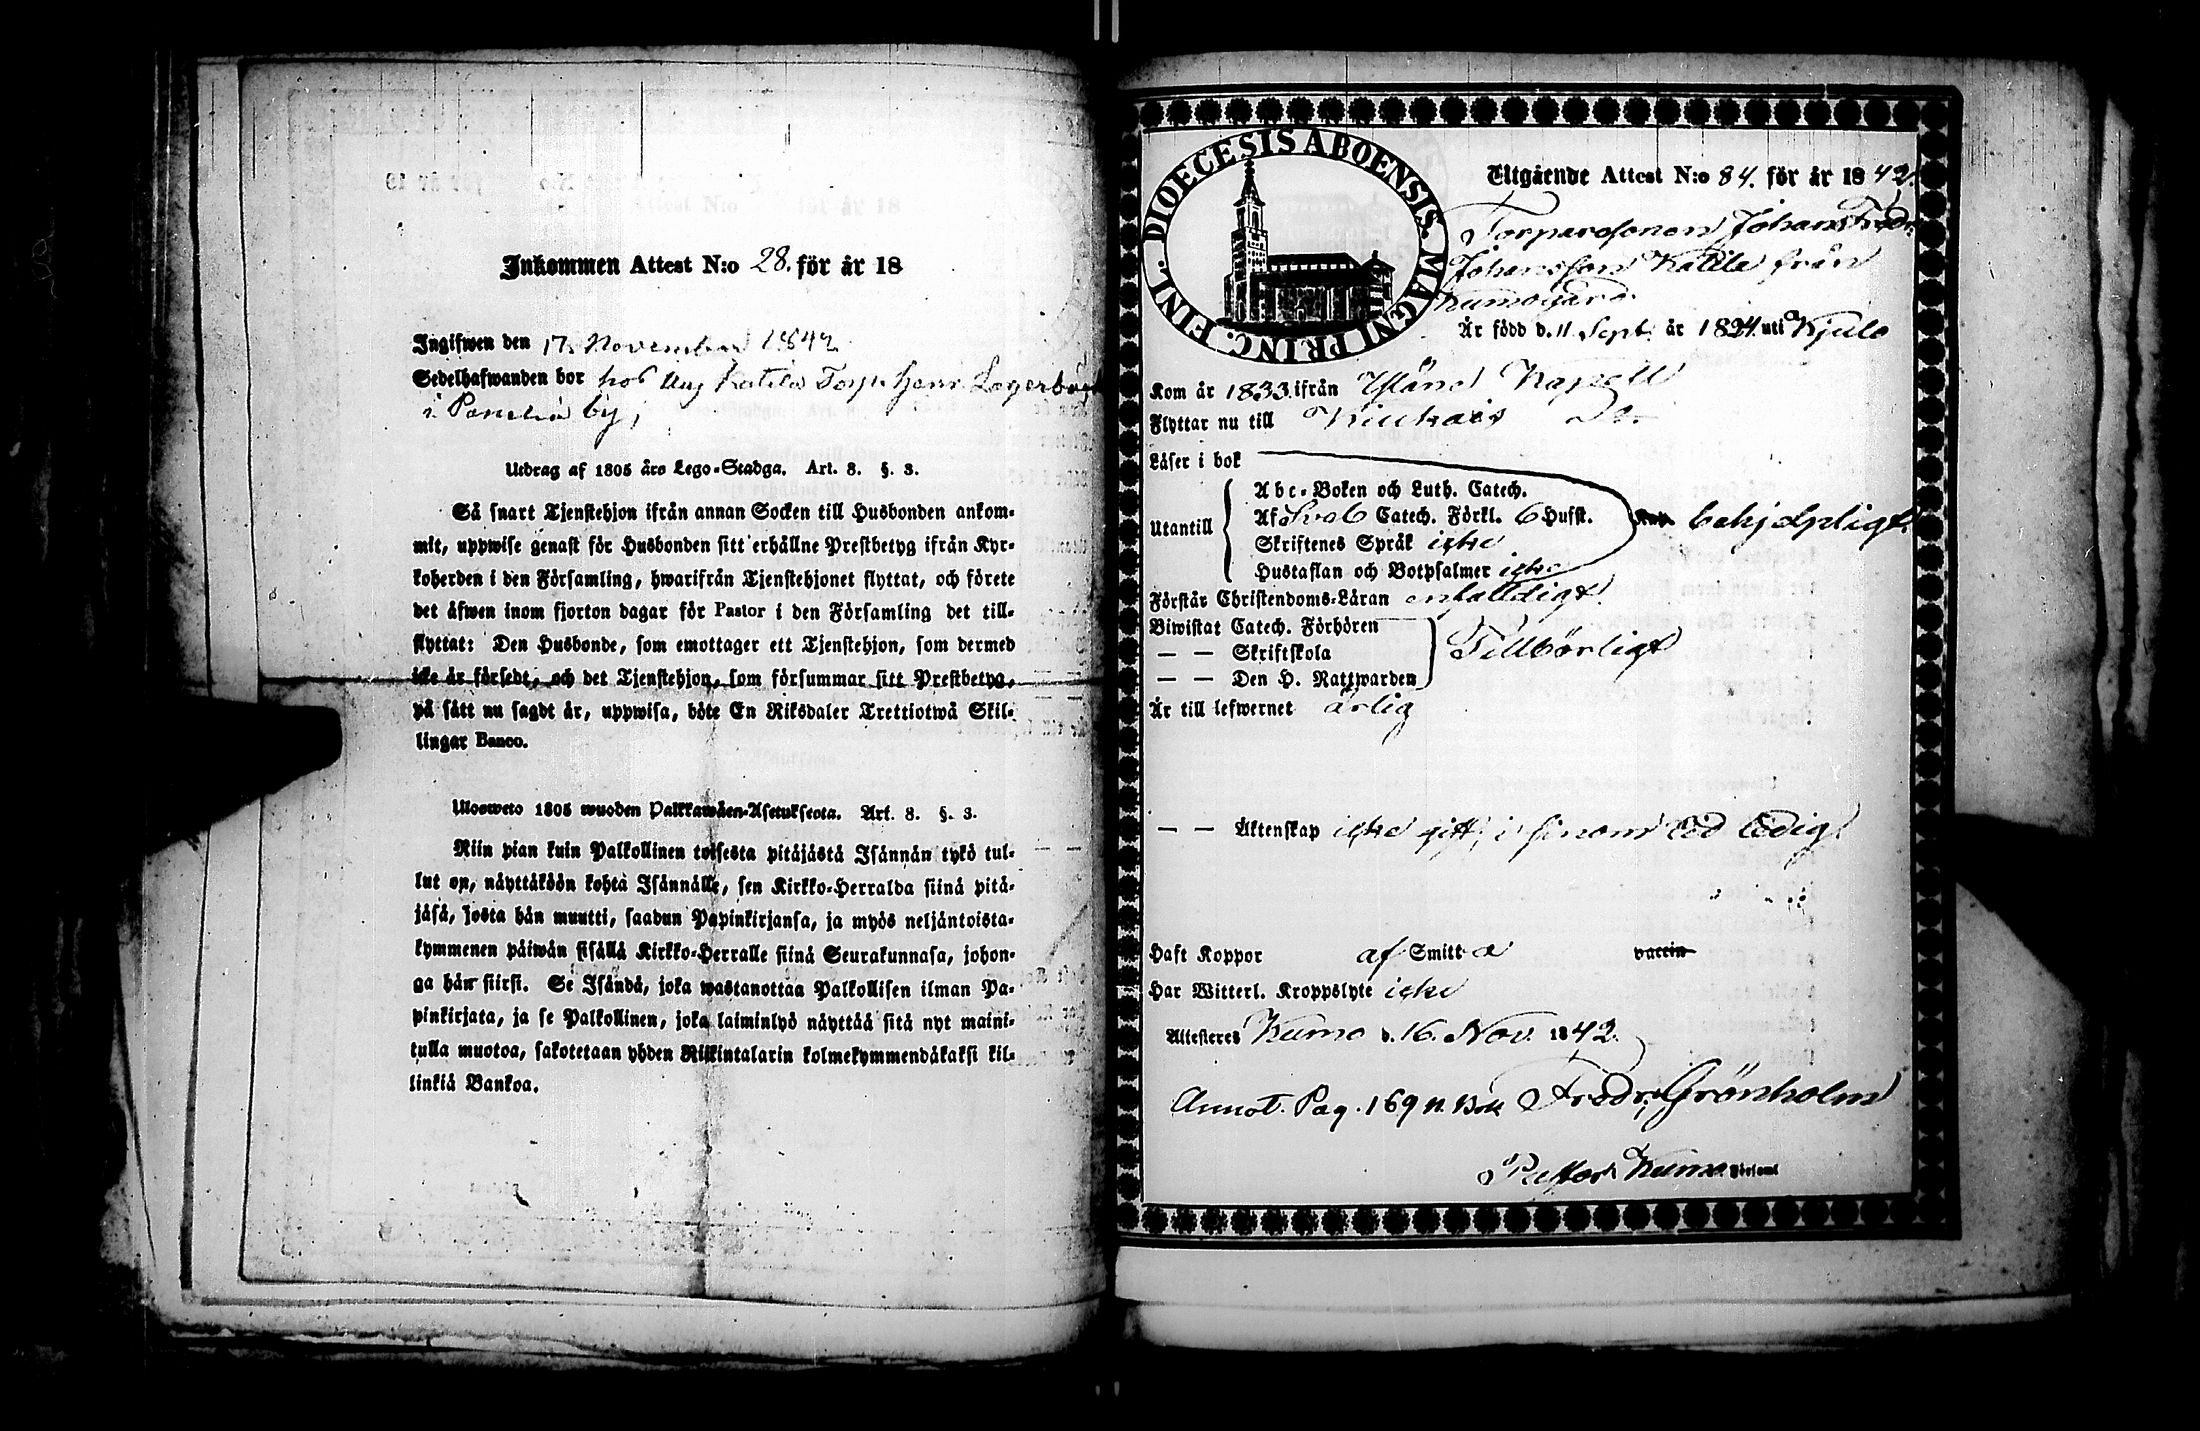 Inkommen Attest N:o 28. för år 18
Ingifwen den 17. November 1842
Sedelhafwanden bor hos Uuj Katila Torp. Henr. Lagerbäg
i Panelia by;
Utdrag af 1805 års Lego-Stadga. Art. 8. §. 3.
Så snart Tjenstehjon ifrån annan Socken till Husbonden ankom-
mit, uppwise genast för Husbonden sitt erhållne Prestbetyg ifrån Kyr-
koherden i den Församling, hwarifrån Tjenstehjonet flyttat, och förete
det äfwen inom fjorton dagar för Pastor i den Församling det till-
flyttat: Den Husbonde, som emottager ett Tjenstehjon, som dermed
icke är försedt, och det Tjenstehjon, som försummar sitt Prestbetyg,
på sätt nu sagdt är, uppwisa, böte En Riksdaler Trettiotwå Skil-
lingar Banco.
Ulosweto 1805 wuoden Palkkawäen-Asetuksesta. Art. 8. §. 3.
Niin pian kuin Palkollinen toisesta pitäjästä Isännän tykö tul-
lut on, näyttäköön kohta Isännälle, sen Kirkko-Herralda siinä pitä-
jäsä, josta hän muutti, saadun Papinkirjansa, ja myös neljäntoista-
kymmenen päiwän sisällä Kirkko-Herralle siinä Seurakunnasa, johon-
ga hän siirsi. Se Isändä, joka wastanottaa Palkollisen ilman Pa-
pinkirjata, ja se Palkollinen, joka laiminlyö näyttää sitä nyt maini-
tulla muotoa, sakotetaan yhden Riikintalarin kolmekymmendäkaksi kil-
linkiä Bankoa.
DIOECESIS ABOENSIS. MAGNI PRINC. FINL.
Utgående Attest N:o 84. för år 1842.
Torparesonen Johan Fredr.
Johansson Katila från
Kumogård.
Är född d. 11 Sept. år 1824. uti Kjulo
Kom år 1833. ifrån Kapell
Flyttar nu till Kiukais Do
Läser i bok
Utantill
Abc-Boken och Luth. Catech.
Af Svab Catech. Förkl. 6 Hufst.
Skriftenes Språk icke
Hustaflan och Botpsalmer icke
behjelpligt.
Förstår Christendoms-Läran enfaldigt.
Biwistat Catech. Förhören
— — Skriftskola
— — Den H. Nattwarden
Tillbörligt
Är till lefwernet ärlig
— — Äktenskap icke gift; i finom led ledig
Haft Koppor af Smitta vaccin
Har Witterl. Kroppslyte icke
Attesteres Kumo d. 16. Nov. 1842.
Annot. Pag. 169 n. Bok Fredr. Grönholm
Pastor i Kumo Församl